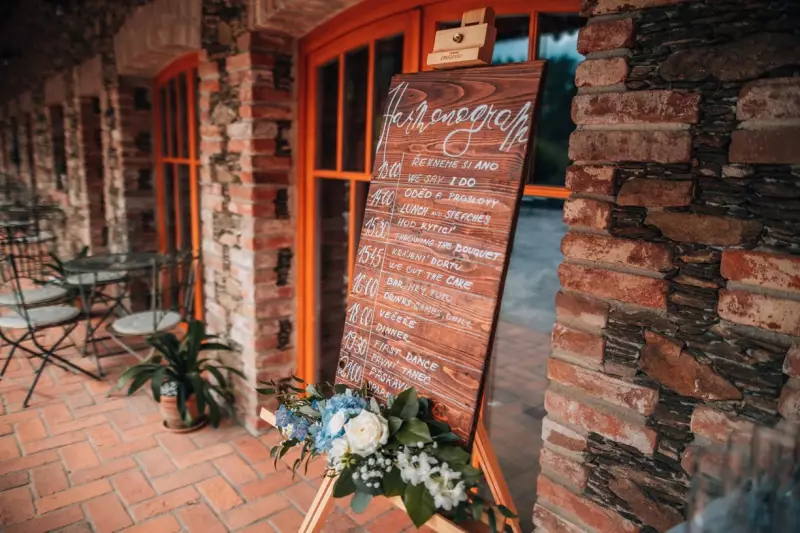 Harmonogram
13:00 ŘEKNEME SI ANO
WE SAY I DO
14:00 OBĚD A PROSLOVY
LUNCH AND SPEECHES
15:30 HOD KYTICÍ
THROWING THE BOUQUET
15:45 KRÁJENÍ DORTU
WE CUT THE CAKE
16:00 BAR, HRY, FOCENÍ
DRINKS, GAMES,
18:00 VEČEŘE
DINNER
19:30 FIRST DANCE
PRVNÍ TANEC
21:00